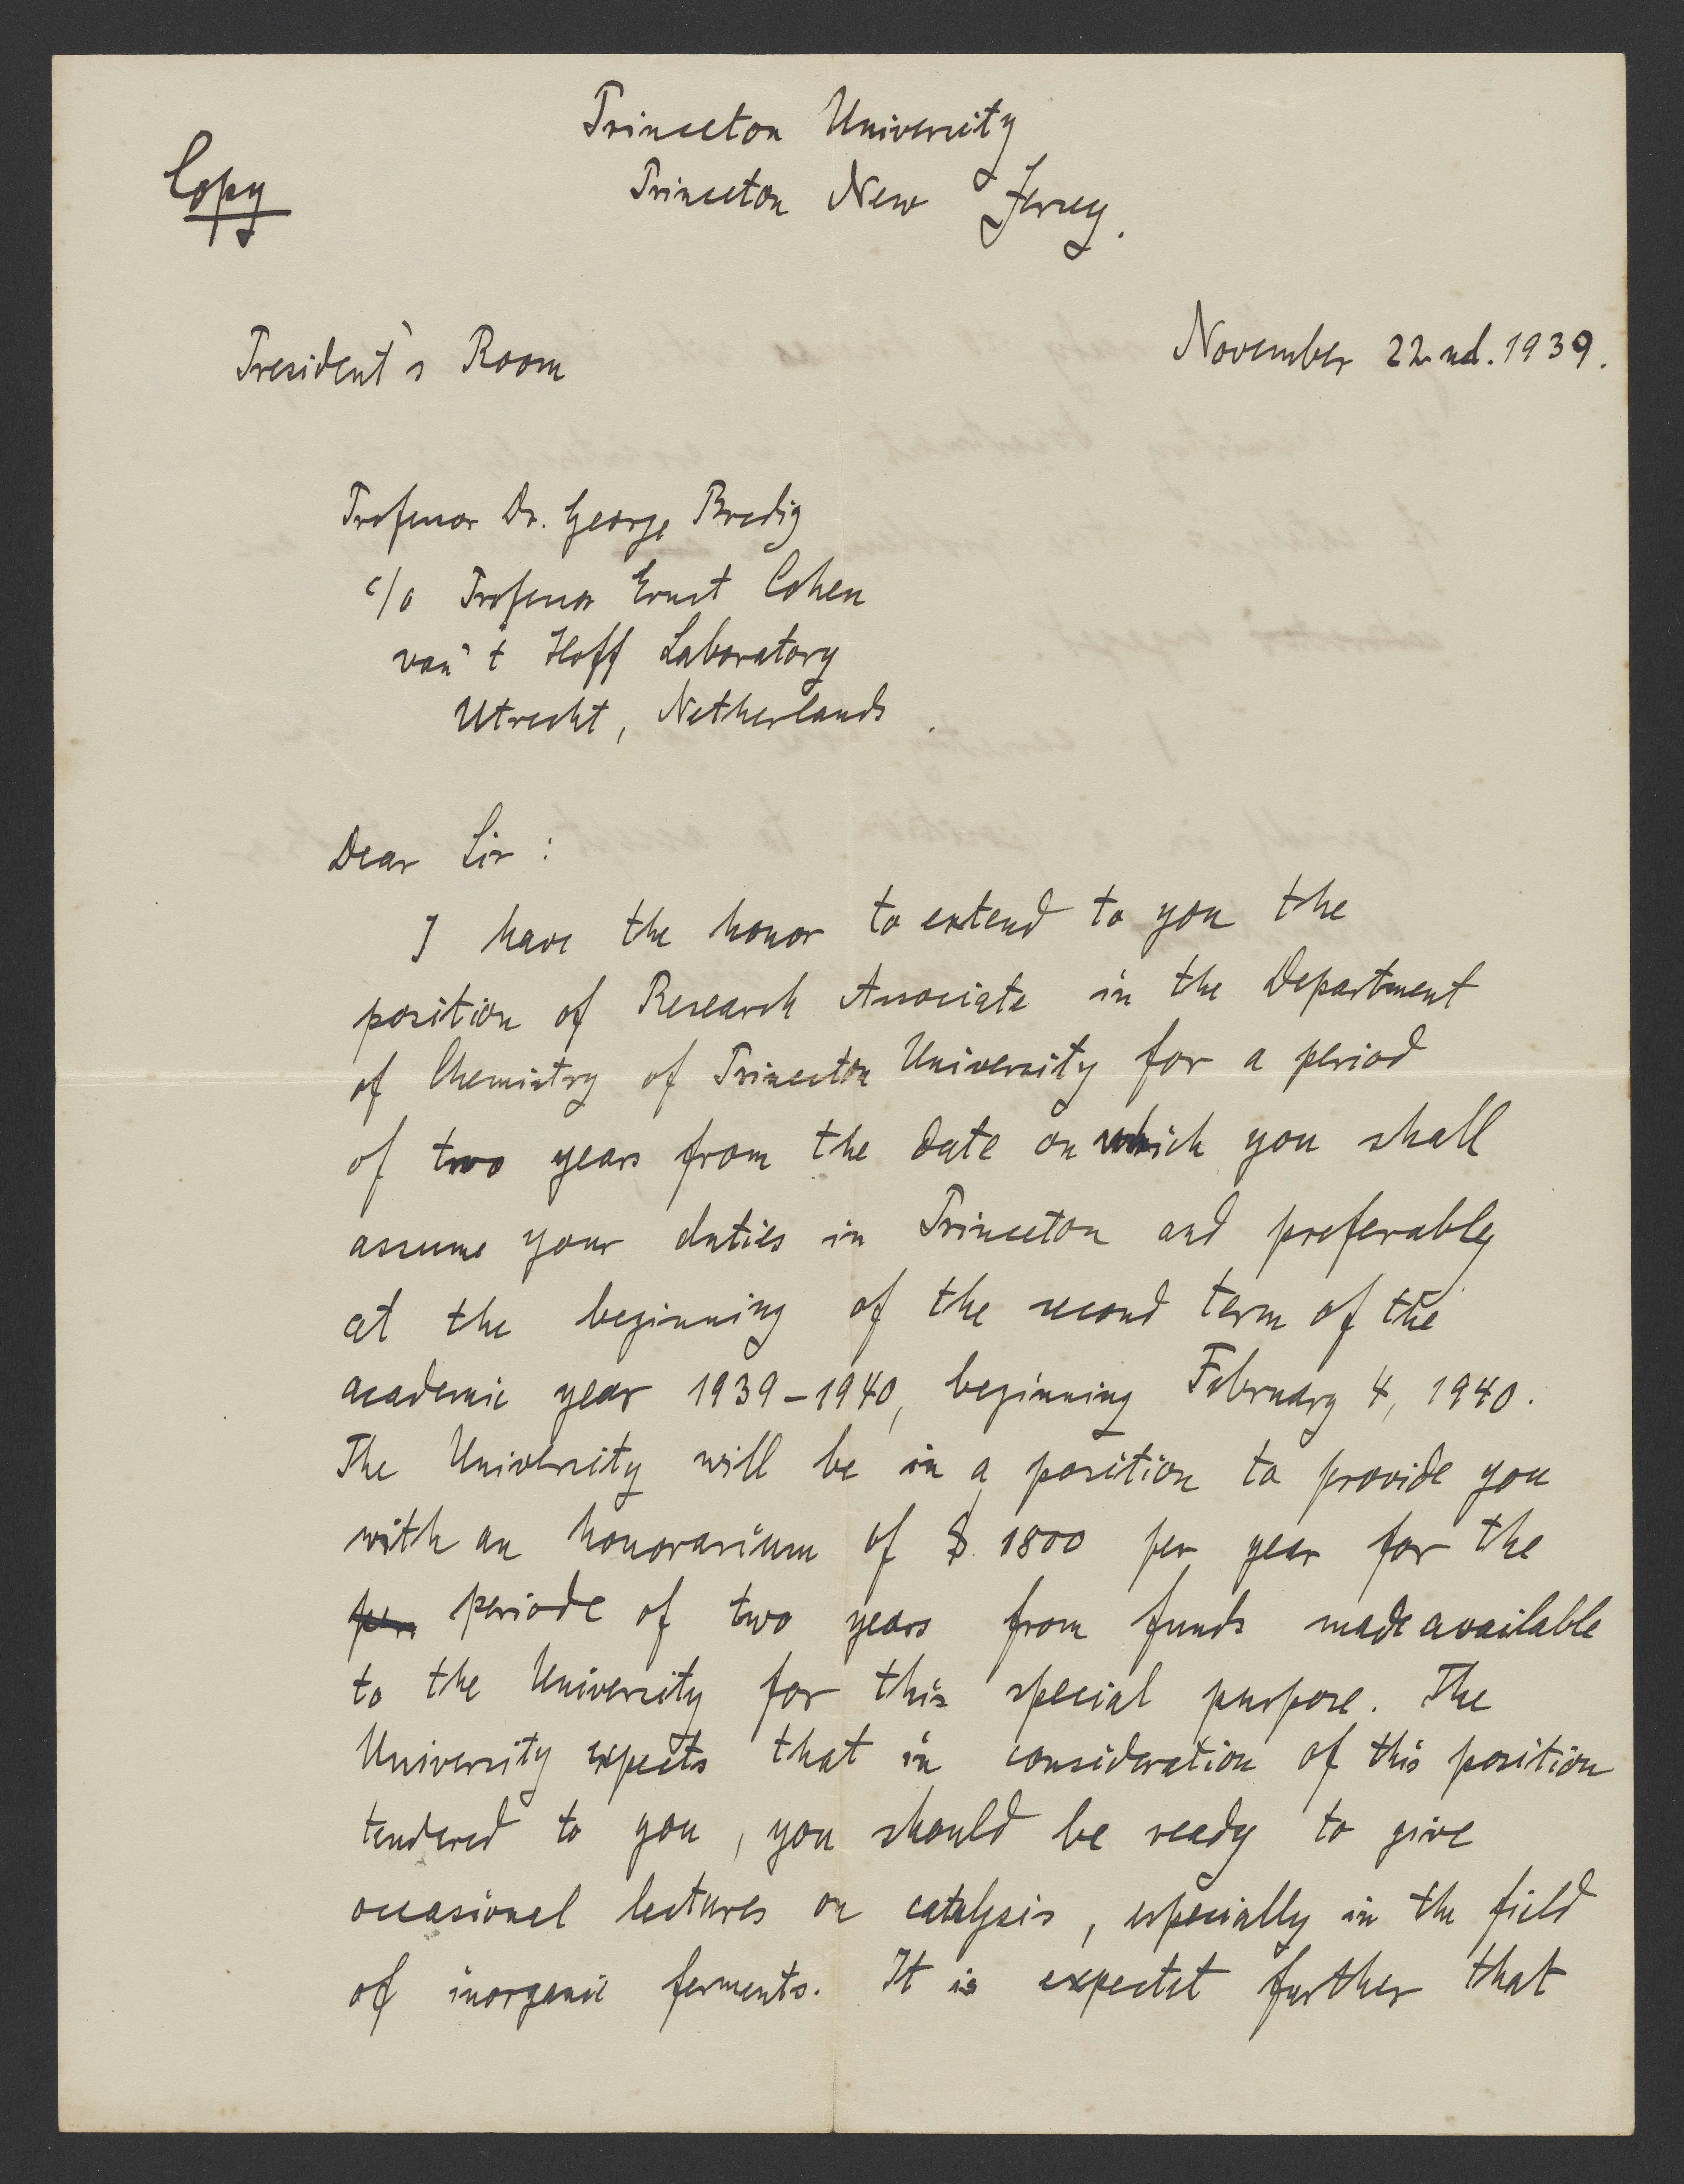 Princeton University
Copy
Princeton New Jersey.
President's Room
November 22nd. 1939.
Professor Dr. George Bredig
c/o Professor Ernst Cohen
van't Hoff Laboratory
Utrecht, Netherlands.
Dear Sir:
I have the honor to extend to you the
position of Research Associate in the Department
of Chemistry of Princeton University for a period
of two years from the date on which you shall
assume your duties in Princeton and preferably
at the beginning of the second term of the
academic year 1939-1940, beginning February 4, 1940.
The University will be in a position to provide you
with an honorarium of $. 1800 per year for the
per periode of two years from funds made available
to the University for this special purpose. The
University expects that in consideration of this position
tendered to you, you should be ready to give
occasional lectures on catalysis, especially in the field
of inorganic ferments. It is expectet further that